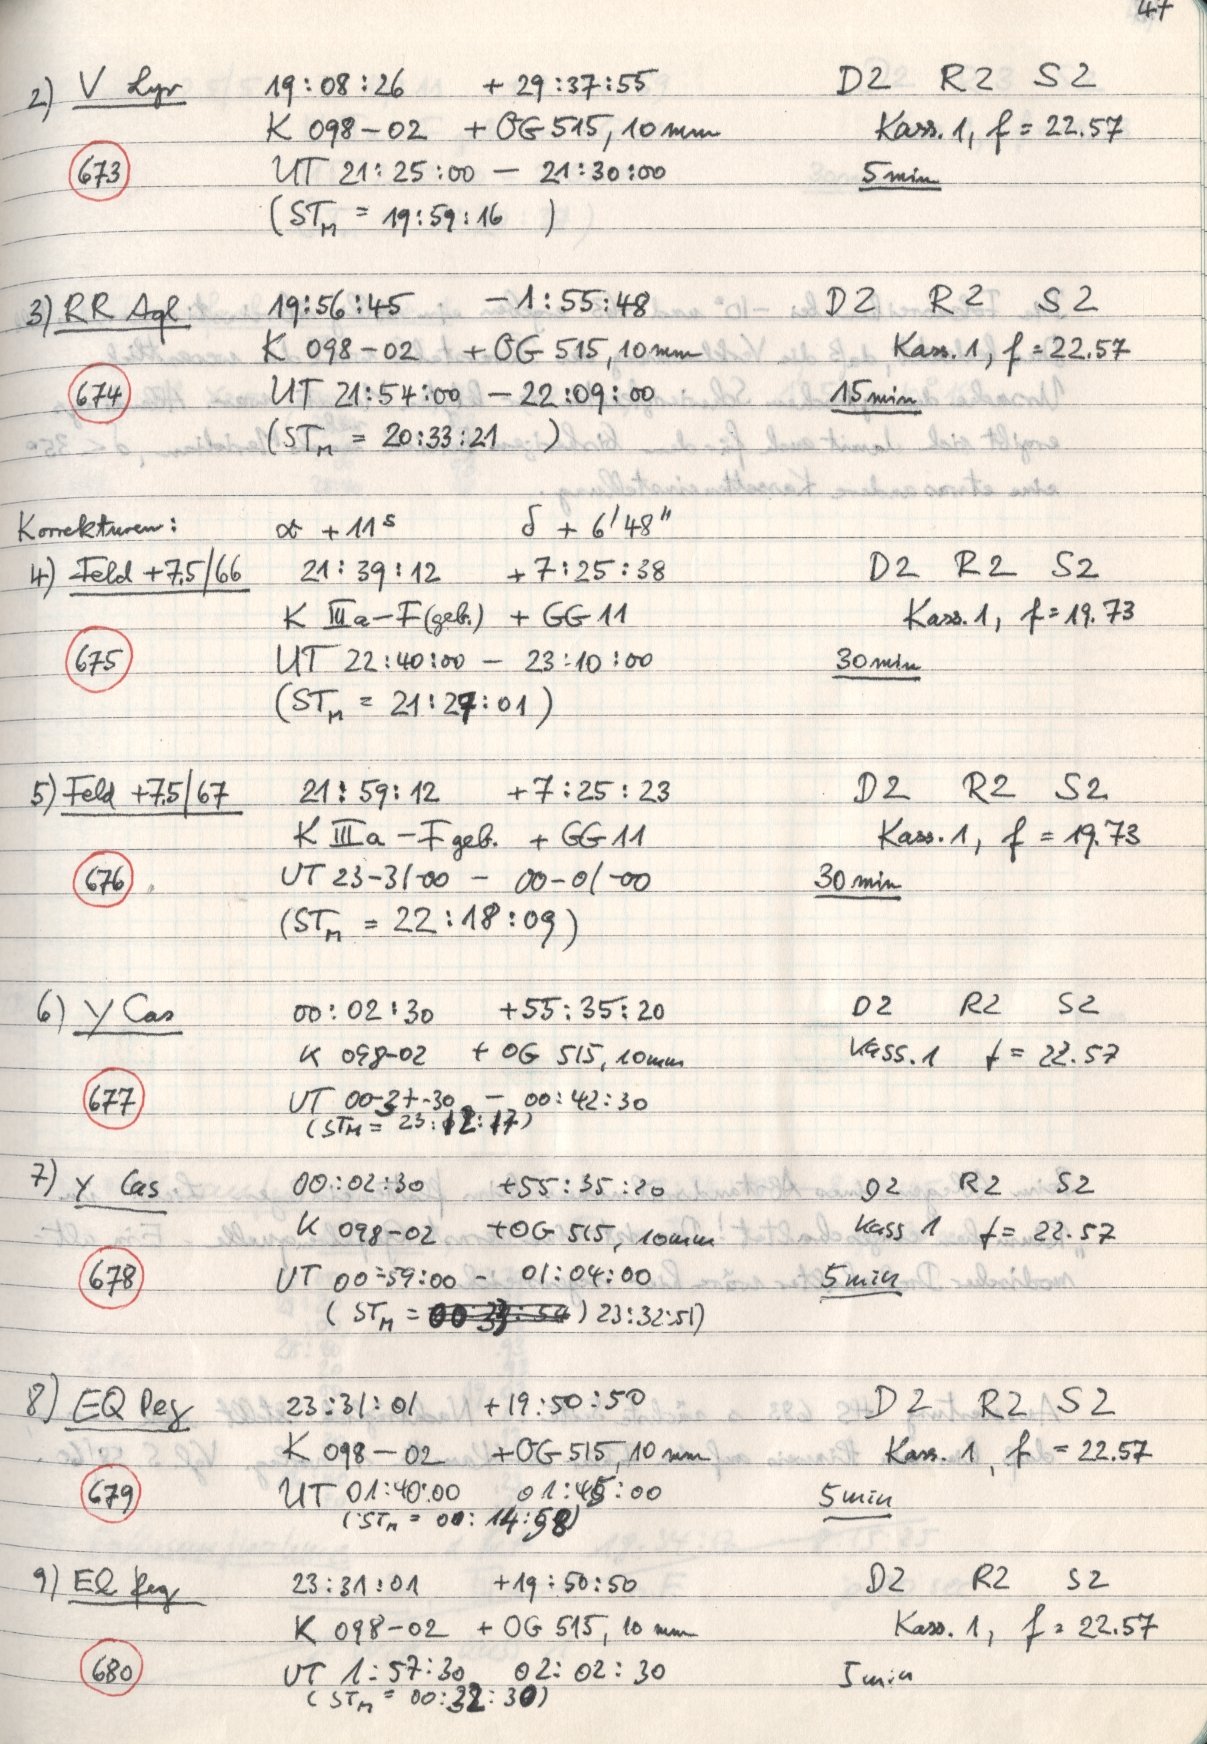 47
2) V Lyr 19:08:26 + 29:37:55 D2 R2 S2
K 098-02 + OG 515, 10mm Kass. 1, f = 22.57
673 UT 21:25:00 - 21:30:00 5min
(STM = 19:59:16 )
3) RR Aql 19:56:45 -1:55:48 D2 R2 S2
K 098-02 + OG 515, 10mm Kass. 1, f = 22.57
674 UT 21:54:00 - 22:09:00 15min
(STM = 20:33:21 )
Korrekturen: α +11s δ + 6'48"
4) Feld +7.5/66 21:39:12 +7:25:38 D2 R2 S2
K IIIa-F (geb.) + GG11 Kass. 1, f = 19.73
675 UT 22:40:00 - 23:10:00 30min
(STM = 21:27:01)
5) Feld +7.5/67 21:59:12 +7:25:23 D2 R2 S2
K IIIa-F geb. + GG11 Kass. 1, f = 19.73
676 UT 23-31-00 - 00-01-00 30min
(STM = 22:18:09)
6) Y Cas 00:02:30 +55:35:20 D2 R2 S2
K 098-02 + OG 515, 10mm Kass. 1 f = 22.57
677 UT 00-37-30 - 00:42:30
(STM = 23:12:17)
7) Y Cas 00:02:30 +55:35:20 D2 R2 S2
K 098-02 +OG 515, 10mm Kass 1 f = 22.57
678 UT 00-59:00 - 01:04:00 5min
( STM = ) 23:32:51)
8) EQ Peg 23:31:01 +19:50:50 D2 R2 S2
K 098-02 +OG 515, 10 mm Kass. 1, f = 22.57
679 UT 01:40:00 01:45:00 5min
(STM = 00:14:58)
9) EQ Peg 23:31:01 +19:50:50 D2 R2 S2
K 098-02 + OG 515, 10 mm Kass. 1, f = 22.57
680 UT 1:57:30 02:02:30 5min
(STM = 00:32:30)